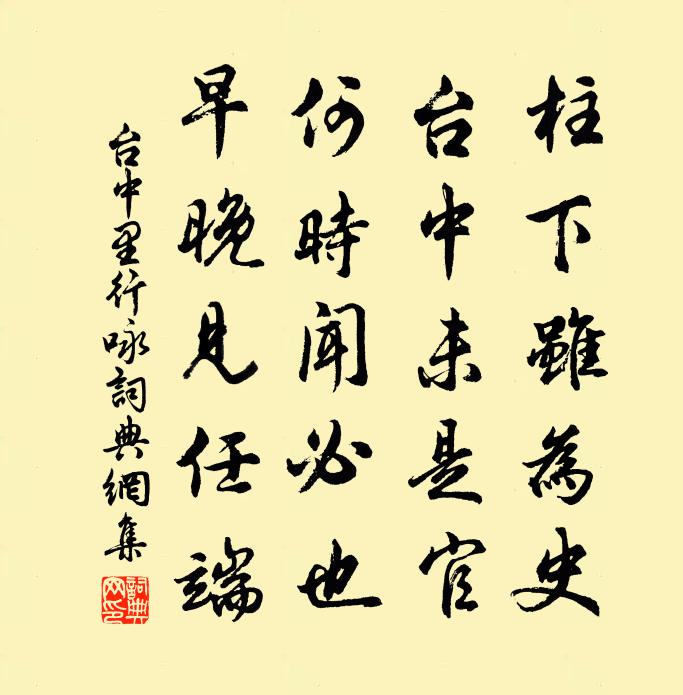 柱下雖為史
台中未是官
何時聞必也
早晚見任端
台中里行咏詞典網集
詞典網印